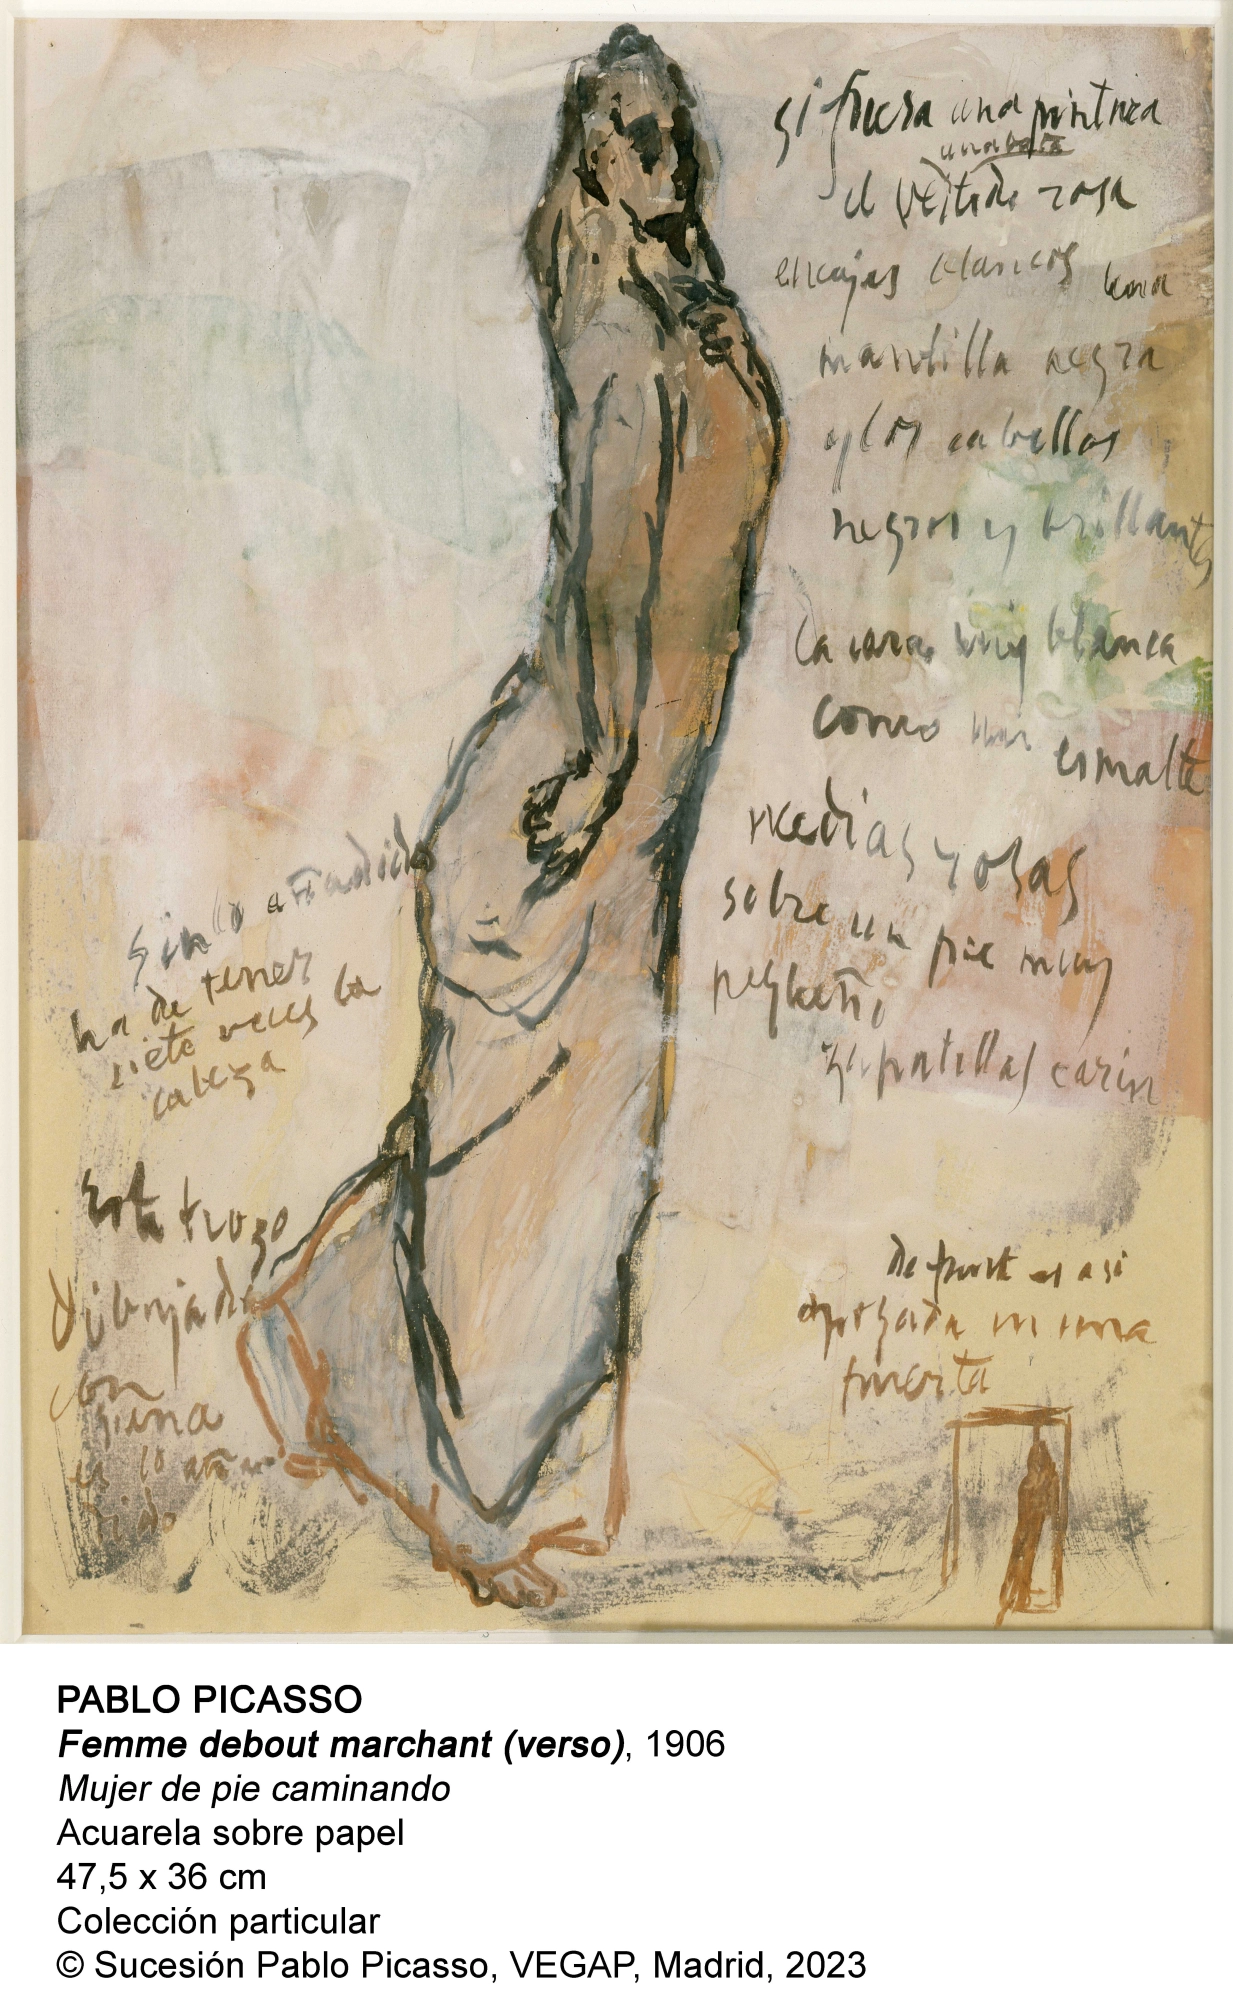 si fuera una pintura
una bata
el vestido rosa
encajes blancos
mantilla negra
y los cabellos
negros y brillantes
la cara muy blanca
como un esmalte
medias rosas
sobre un pie muy
pequeño
zapatillas
sin lo añadido
ha de tener
siete veces la
cabeza
Este trozo
dibujado
con
siena
es lo aña
dido
de frente es asi
apoyada en una
puerta
PABLO PICASSO
Femme debout marchant (verso), 1906
Mujer de pie caminando
Acuarela sobre papel
47,5 x 36 cm
Colección particular
© Sucesión Pablo Picasso, VEGAP, Madrid, 2023